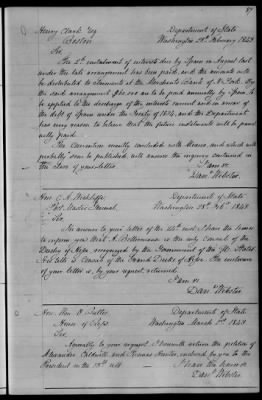 87
Henry Clark Esq Department of State
Boston Washington 28th February 1843
Sir,
The 2d instalment of interest due by Spain in August last
under the late arrangement has been paid, and the amount will
be distributed to claimants at the Merchants' Bank of N. York. By
the said arrangement $60.000 are to be paid annually by Spain, to
be applied to the discharge of the interest current and in arrear of
the debt of Spain under the Treaty of 1834, and the Department
has every reason to believe that the future instalments will be punct
ually paid.
The Convention recently concluded with Mexico, and which will
probably soon be published, will answer the inquiry contained in
the close of your letter.
I am &c
Danl Webster.
Hon. C. A. Wickliffe, Department of State
Post Master General. Washington 28th Feby 1843.
Sir
In answer to your letter of the inst. I have the honor
to inform you that A. is the only Consul of the
Duchy of Hesse recognized by the Government of the U. States
He is Consul of the Grand Duchy of Hesse. The enclosure
of your letter is, by your request returned.
I am &c
Danl Webster.
Hon. Wm. O. Butler Department of State
House of Reps Washington March 1st 1843
Sir
Agreeably to your request, I herewith return the petition of
Alexander Caldwell and Thomas Hunter, enclosed by you to the
President in the
I have the honor &c
Danl Webster.